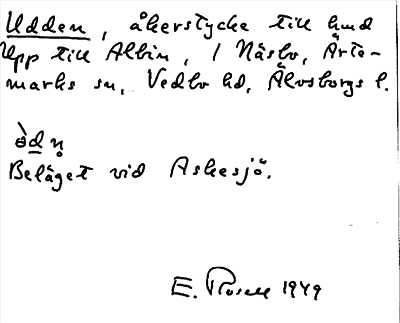 Udden, åkerstycke till hmd
Upp till Albin, 1 Näsbo, Ärte-
marks sn, Vedbo hd, Älvsborgs l.
òdn̥
Beläget vid Askesjö.
E. Rosell 1949